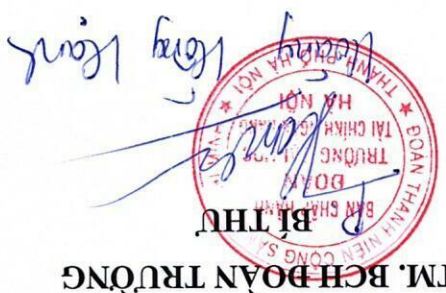 TM. BCH ĐOÀN TRƯỜNG
BÍ THƯ
ĐOÀN THANH NIÊN CỘNG SẢ
★ THÀNH PHỐ HÀ NỘI ★
BAN CHẤP HÀNH
ĐOÀN
TRƯỜNG
TÀI CHÍNH NG HÀNG
HÀ NỘI
Hoàng Hồng Hạnh